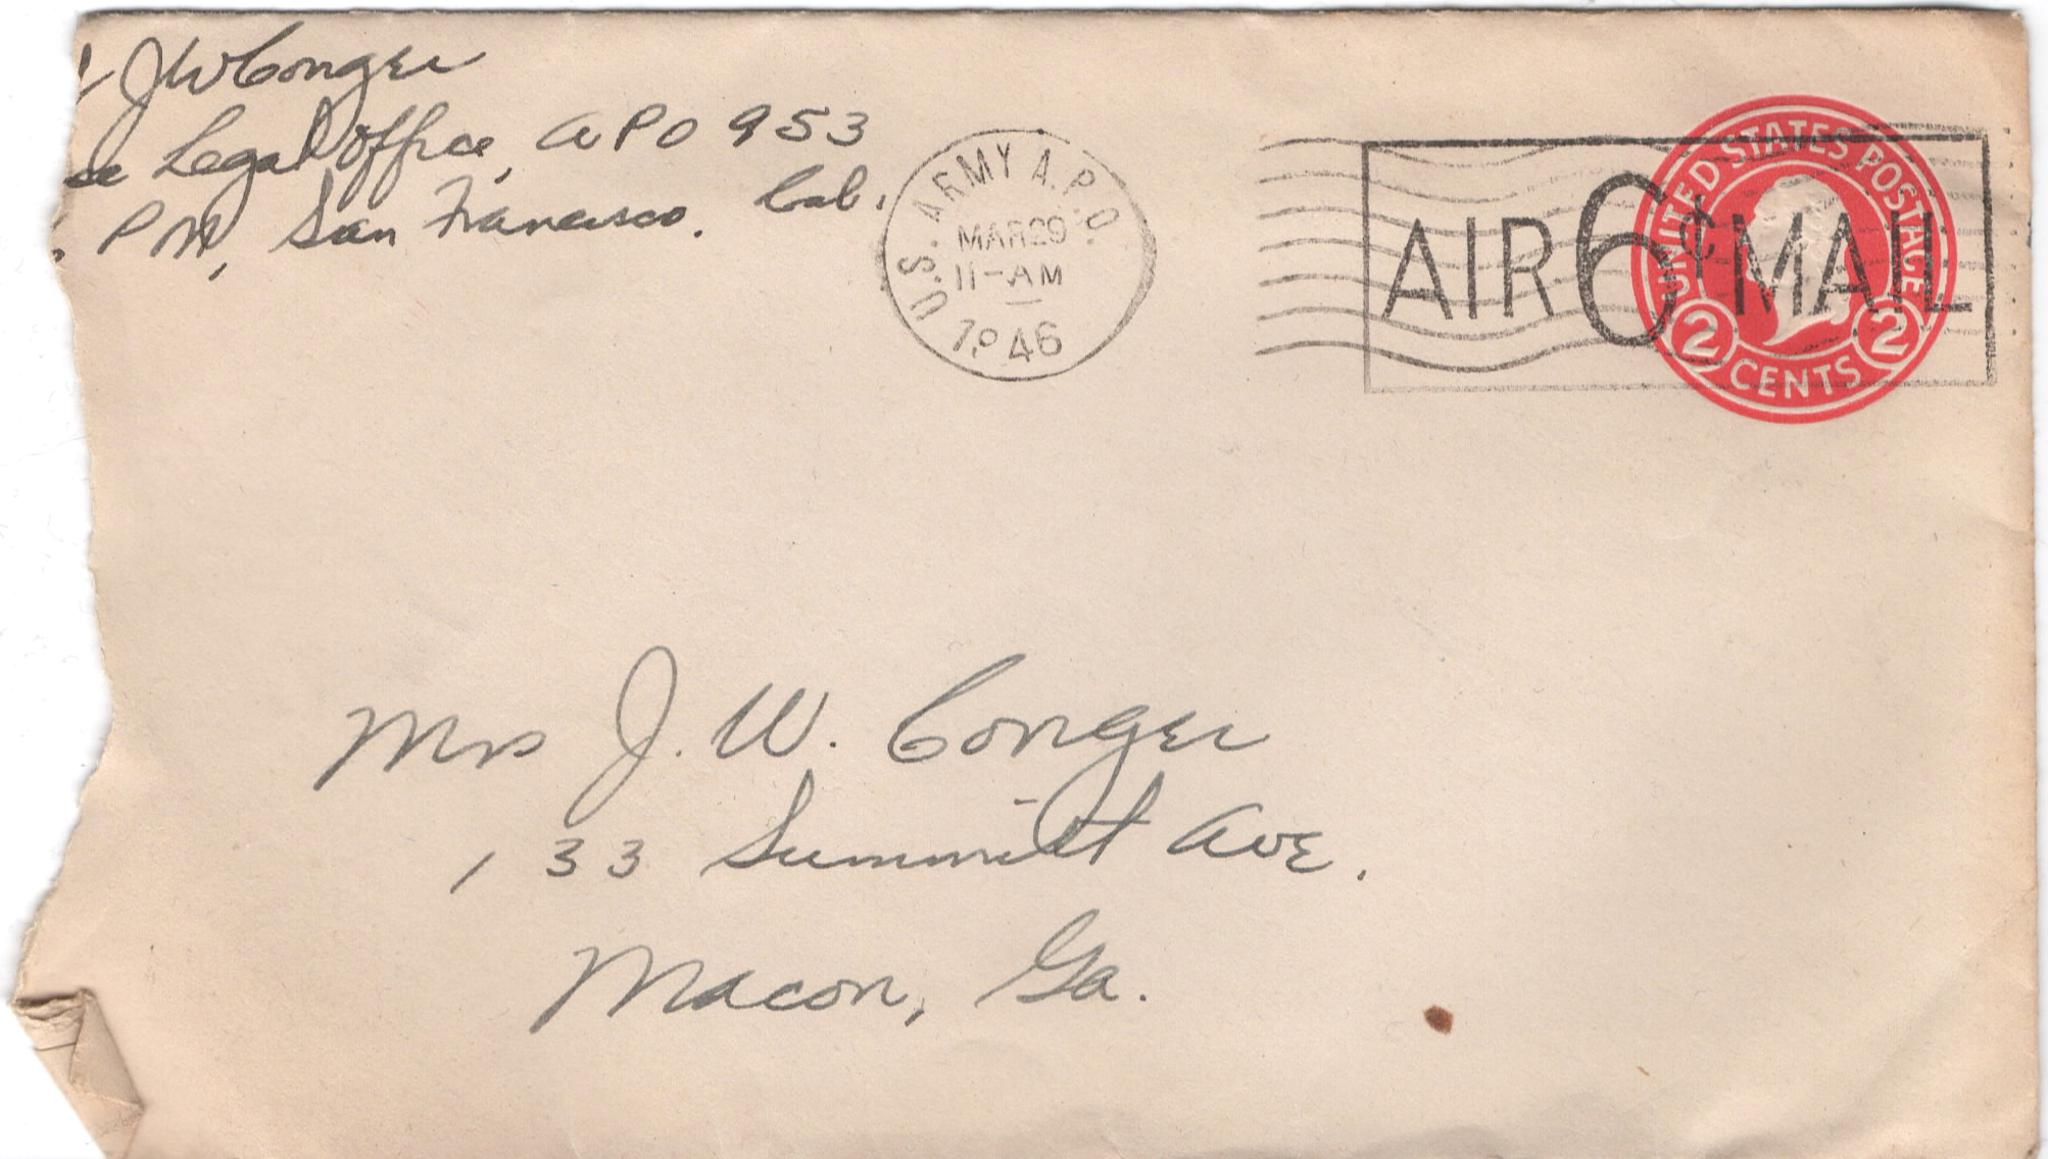 J W Conger
Legal Office, APO 953
PM, San Francisco. Cal.
U.S. ARMY A.P.O.
MAR 29
11-AM
1946
AIR 6¢ MAIL
UNITED STATES POSTAGE
2 2
CENTS
Mrs J. W. Conger
133 Summitt Ave.
Macon, Ga.